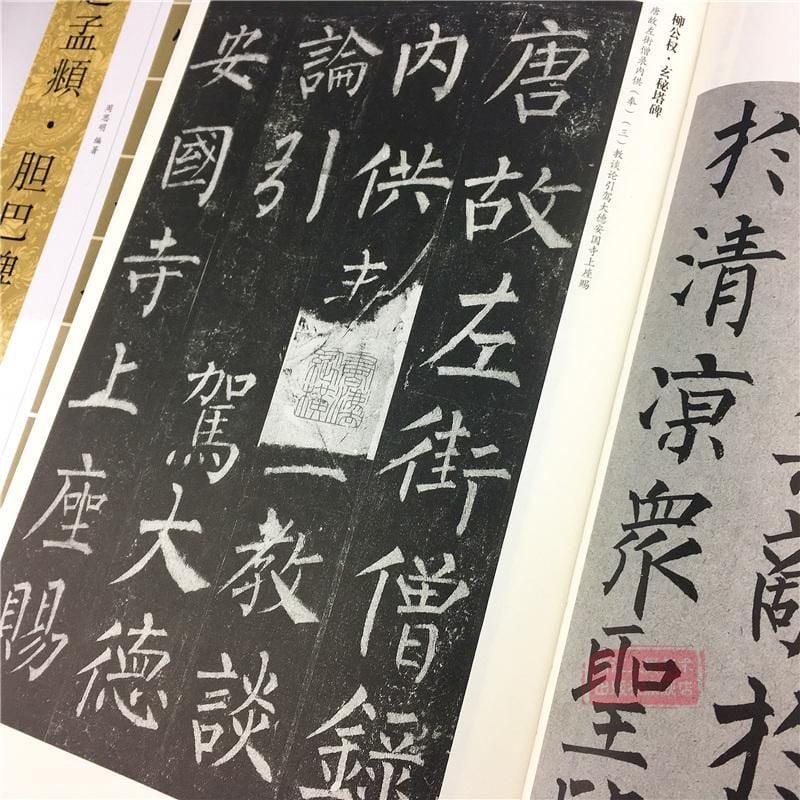 柳公权·玄秘塔碑
唐故左街僧录内供（奉）（三）教谈论引驾大德安国寺上座赐
唐故左街僧錄
内供一教談
論引駕大德
安國寺上座賜
於清凉眾聖
孟頫·胆巴碑
周思明 编著